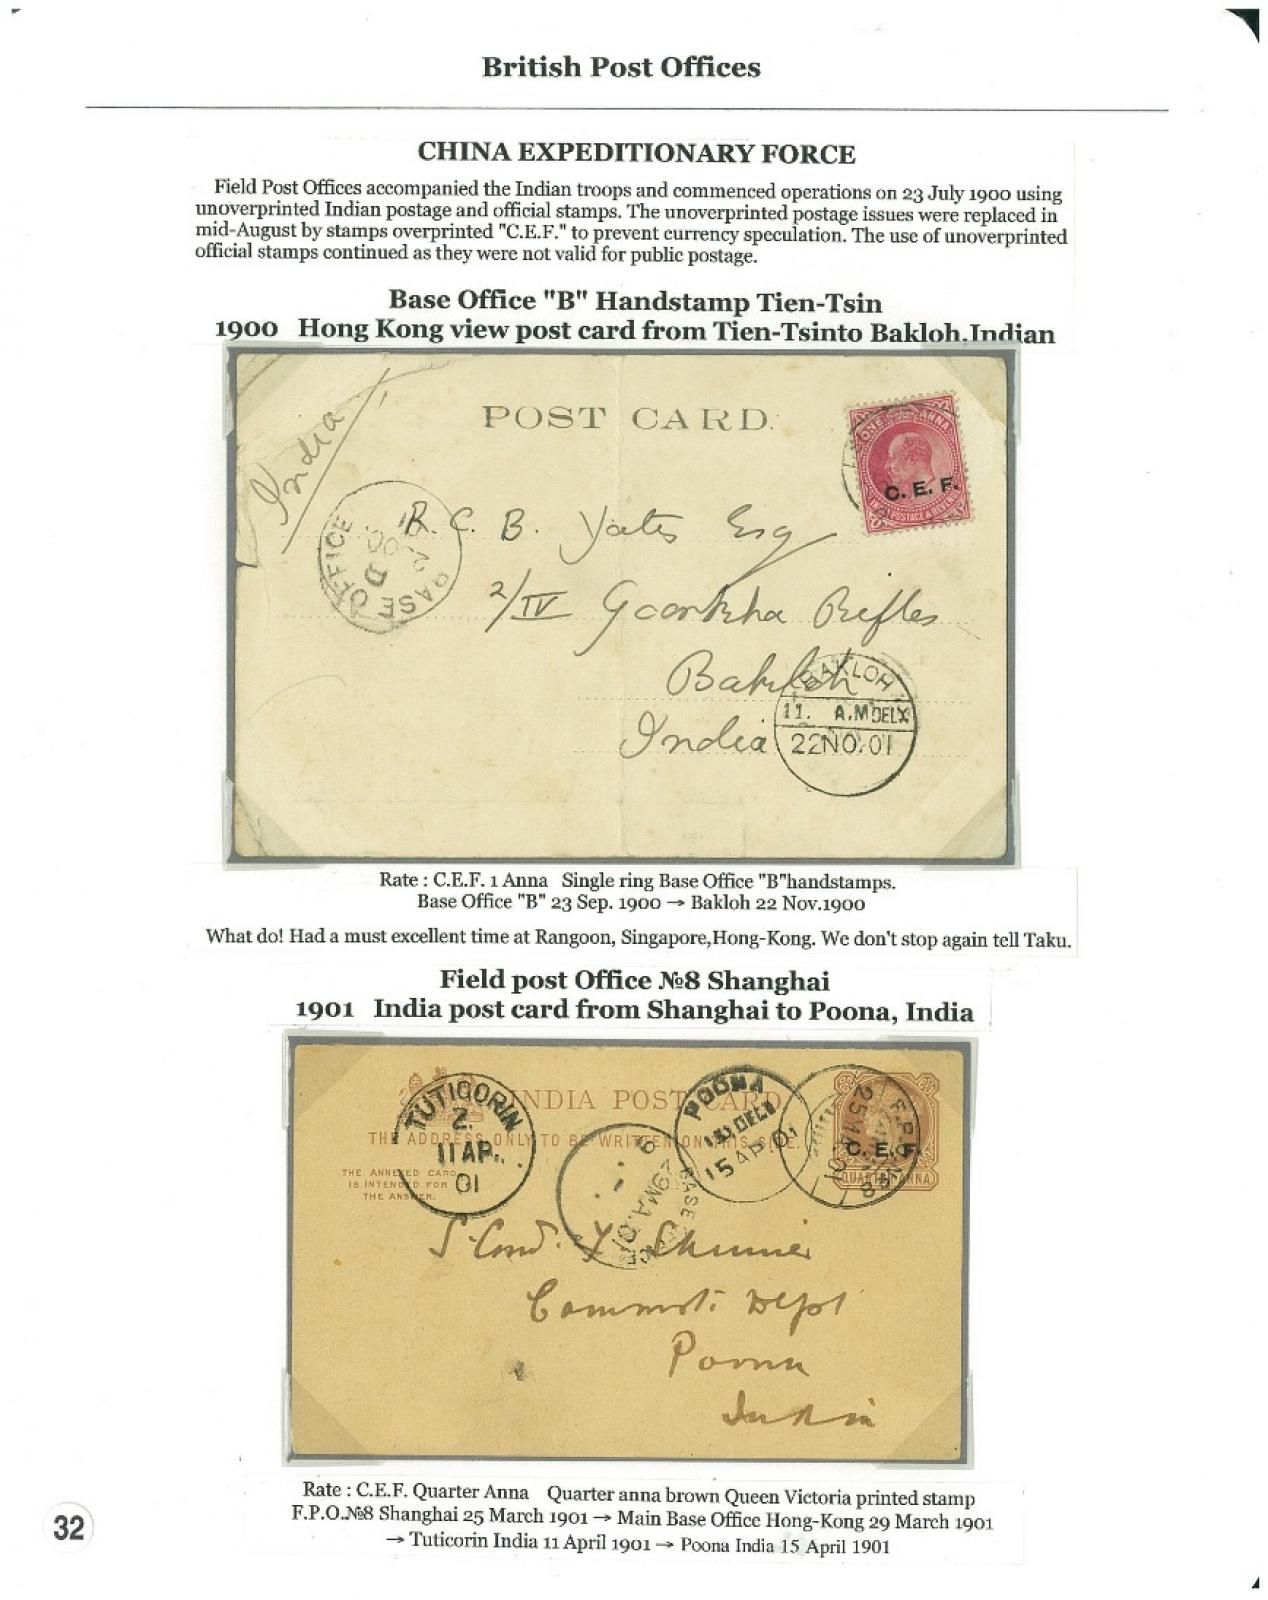 British Post Offices
CHINA EXPEDITIONARY FORCE
Field Post Offices accompanied the Indian troops and commenced operations on 23 July 1900 using
unoverprinted Indian postage and official stamps. The unoverprinted postage issues were replaced in
mid-August by stamps overprinted "C.E.F." to prevent currency speculation. The use of unoverprinted
official stamps continued as they were not valid for public postage.
Base Office "B" Handstamp Tien-Tsin
1900 Hong Kong view post card from Tien-Tsinto Bakloh.Indian
India
POST CARD.
ONE ANNA
C. E. F.
BASE OFFICE
R. C. B. Yates Esq
2/IV Goorkha Rifles
Bakloh
India
BAKLOH
11. A.M DELX
22NO.01
Rate : C.E.F. 1 Anna Single ring Base Office "B"handstamps.
Base Office "B" 23 Sep. 1900 → Bakloh 22 Nov.1900
What do! Had a must excellent time at Rangoon, Singapore,Hong-Kong. We don't stop again tell Taku.
Field post Office №8 Shanghai
1901 India post card from Shanghai to Poona, India
INDIA POST CARD
THE ADDRESS ONLY TO BE WRITTEN ON THIS SIDE.
THE ANNEXED CARD
IS INTENDED FOR
THE ANSWER.
TUTICORIN
2.
11 AP.
01
BASE OFFICE
29MA.01
POONA
DELY
15 AP.01
F.P.O. №8
25MA.01
C. E. F.
QUARTER ANNA
Dept
Poona
India
Rate : C.E.F. Quarter Anna Quarter anna brown Queen Victoria printed stamp
F.P.O.№8 Shanghai 25 March 1901 → Main Base Office Hong-Kong 29 March 1901
→ Tuticorin India 11 April 1901 → Poona India 15 April 1901
32